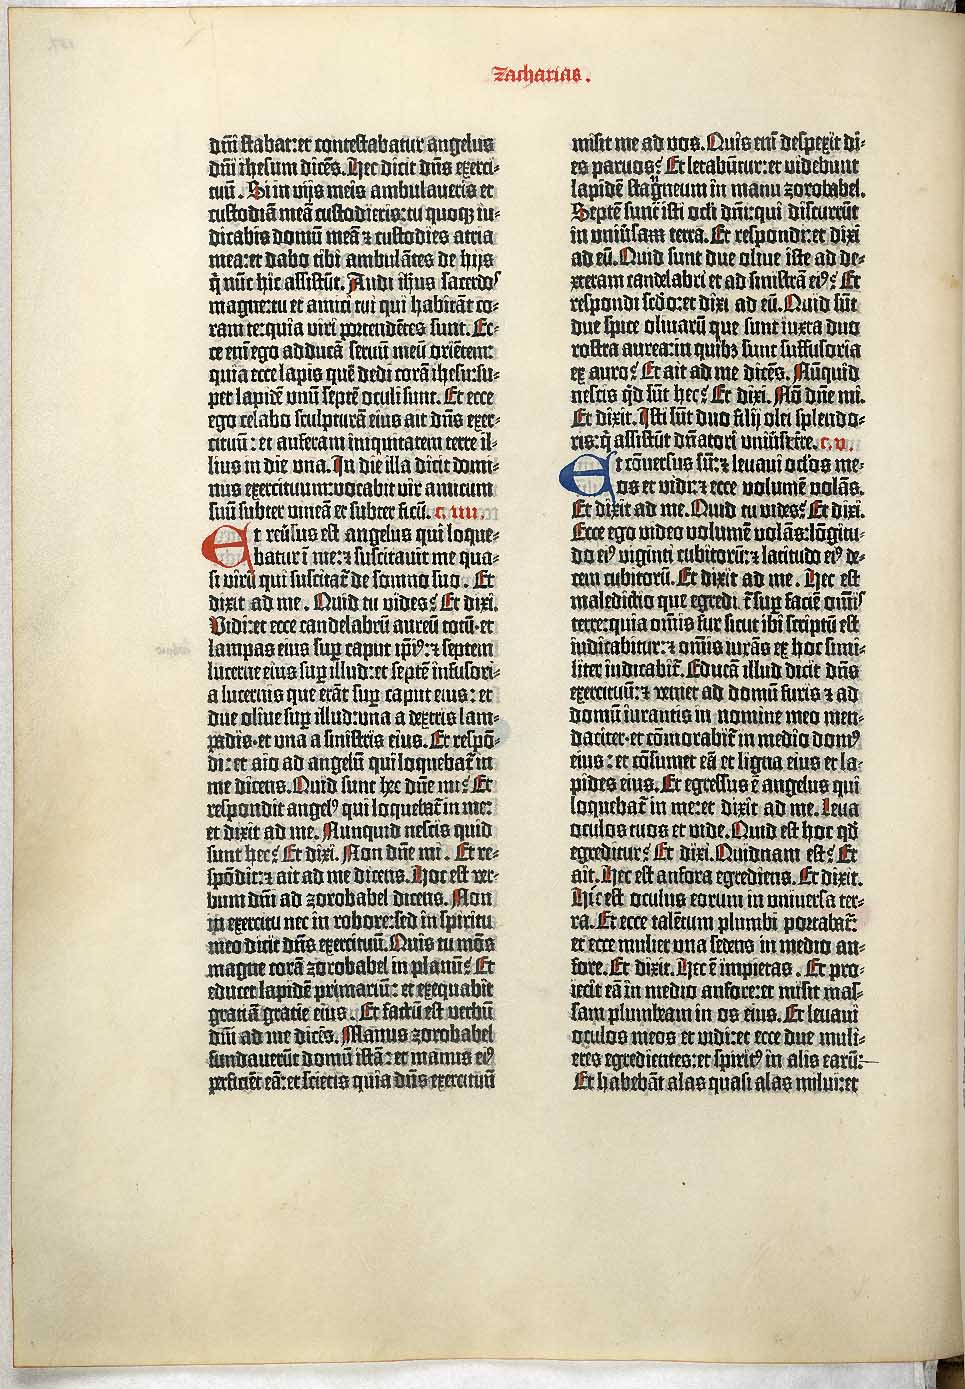 Zacharias.
dñi stabat: et contestabatur angelus
dñi ihesum dicēs. Hec dicit dñs exerci-
tuū. Si in vijs meis ambulaveris et
custodiā meā custodieris: tu quoqȝ iu-
dicabis domū meā ⁊ custodies atria
mea: et dabo tibi ambulātes de hijs
q̄ nūc hic assistūt. Audi ihũs sacerdos
magne: tu et amici tui qui habitāt co-
ram te: quia viri portendētes sunt. Ec-
ce em̄ ego adducā servū meū oriētem:
quia ecce lapis quē dedi corā ihesu: su-
per lapidē unū septē oculi sunt. Et ecce
ego celabo sculpturā eius ait dñs exer-
cituū: et auferam iniquitatem terre il-
lius in die una. In die illa dicit domi-
nus exercituum: vocabit vir amicum
suū subter vineā et subter ficū. c. iiii.
Et reũsus est angelus qui loque-
batur ī me: ⁊ suscitavit me qua-
si virū qui suscitat̄ de somno suo. Et
dixit ad me. Quid tu vides? Et dixi.
Vidi: et ecce candelabrū aureū totū· et
lampas eius sup̱ caput ip̄iꝰ: ⁊ septem
lucerne eius sup̱ illud: et septē infusori-
a lucernis que erāt sup̱ caput eius: et
due olive sup̱ illud: una a dextris lam-
padis· et una a sinistris eius. Et respō-
di: et aio ad angelū qui loquebat̄ in
me dicens. Quid sunt hec dñe mi? Et
respondit angelꝰ qui loquebat̄ in me:
et dixit ad me. Nunquid nescis quid
sunt hec? Et dixi. Non dñe mi. Et re-
spōdit: ⁊ ait ad me dicens. Hoc est ver-
bum dñi ad zorobabel dicens. Non
in exercitu nec in robore: sed in spiritu
meo dicit dñs exercituū. Quis tu mōs
magne corā zorobabel in planū? Et
educet lapidē primariū: et exequabit
gratiā gratie eius. Et factū est verbū
dñi ad me dicēs. Manus zorobabel
fundaverūt domū istā: et manus eiꝰ
perficiēt eā: et scietis quia dñs exercituū
misit me ad vos. Quis em̄ despexit di-
es parvos? Et letabūtur: et videbunt
lapidē stagneum in manu zorobabel.
Septē sunt isti oc̄li dñi: qui discurrūt
in univ̄sam terrā. Et respondi: et dixi
ad eū. Quid sunt due olive iste ad de-
xteram candelabri et ad sinistrā eiꝰ? Et
respondi scd̄o: et dixi ad eū. Quid sūt
due spice olivarū que sunt iuxta duo
rostra aurea: in quibȝ sunt suffusoria
ex auro? Et ait ad me dicēs. Nūquid
nescis qd̄ sūt hec? Et dixi. Nō dñe mi.
Et dixit. Isti sūt duo filij olei splendo-
ris: q̄ assistūt dñatori univ̄se t̄re. c. v.
Et cōversus sū: ⁊ levavi oc̄los me-
os et vidi: ⁊ ecce volumē volās.
Et dixit ad me. Quid tu vides? Et dixi.
Ecce ego video volumē volās: lōgitu-
do eiꝰ viginti cubitorū: ⁊ latitudo eiꝰ de-
cem cubitorū. Et dixit ad me. Hec est
maledictio que egredit̄ sup̱ faciē om̄is
terre: quia om̄is fur sicut ibi scriptū est
iudicabitur: ⁊ om̄is iurās ex hoc simi-
liter iudicabit̄. Educā illud dicit dñs
exercituū: ⁊ veniet ad domū furis ⁊ ad
domū iurantis in nomine meo men-
daciter· et cōmorabit̄ in medio domꝰ
eius: et cōsumet eā et ligna eius et la-
pides eius. Et egressus ē angelus qui
loquebat̄ in me: et dixit ad me. Leva
oculos tuos et vide. Quid est hoc qd̄
egreditur? Et dixi. Quidnam est? Et
ait. Hec est anfora egrediens. Et dixit.
Hic est oculus eorum in universa ter-
ra. Et ecce talētum plumbi portabat̄:
et ecce mulier una sedens in medio an-
fore. Et dixit. Hec ē impietas. Et pro-
iecit eā in medio anfore: et misit mas-
sam plumbeam in os eius. Et levavi
oculos meos et vidi: et ecce due muli-
eres egredientes: et spiritꝰ in alis earū:
Et habebāt alas quasi alas milvi: et